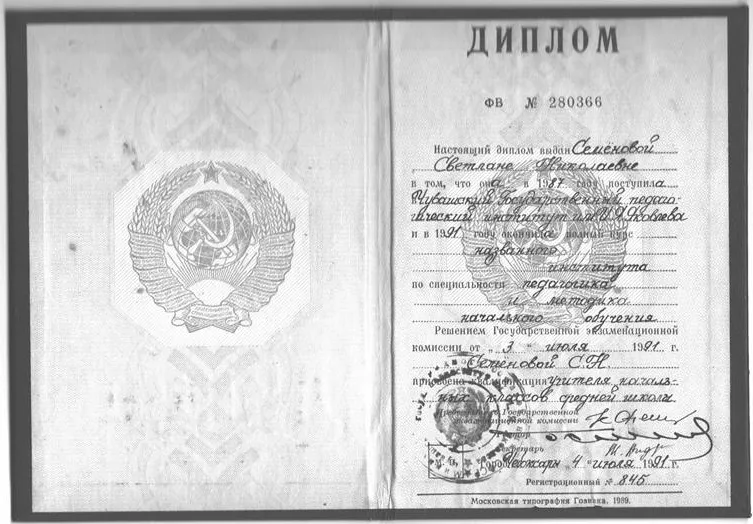 ДИПЛОМ
ФВ № 280366
Настоящий диплом выдан Семёновой
Светлане Николаевне
в том, что она в 1987 году поступила
в Чувашский Государственный педаго-
гический институт им. И.Я.Яковлева
и в 1991 году окончила полный курс
названного
института
по специальности педагогика
и методика
начального обучения
Решением Государственной экзаменационной
комиссии от „3“ июля 1991 г.
Семёновой С.Н.
присвоена квалификация учителя началь-
ных классов средней школы
Председатель Государственной
экзаменационной комиссии
Ректор
Секретарь
Город Чебоксары 4 июля 1991 г.
Регистрационный № 845
Московская типография Гознака. 1989.